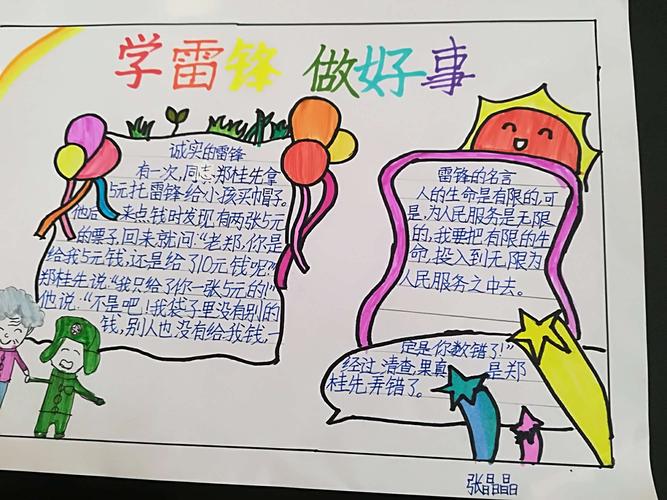 学雷锋 做好事
诚实的雷锋
有一次,同志郑桂先拿
5元托雷锋给小孩买帽子。
他后来点钱时发现有两张5元
的票子,回来就问:“老郑,你是
给我5元钱,还是给了10元钱呢?”
郑桂先说:“我只给了你一张5元的!”
他说:“不是吧!我袋子里没有别的
钱,别人也没有给我钱,一
定是你数错了!”
经过清查,果真是郑
桂先弄错了。
雷锋的名言
人的生命是有限的,可
是,为人民服务是无限
的,我要把有限的生
命,投入到无限为
人民服务之中去。
张晶晶